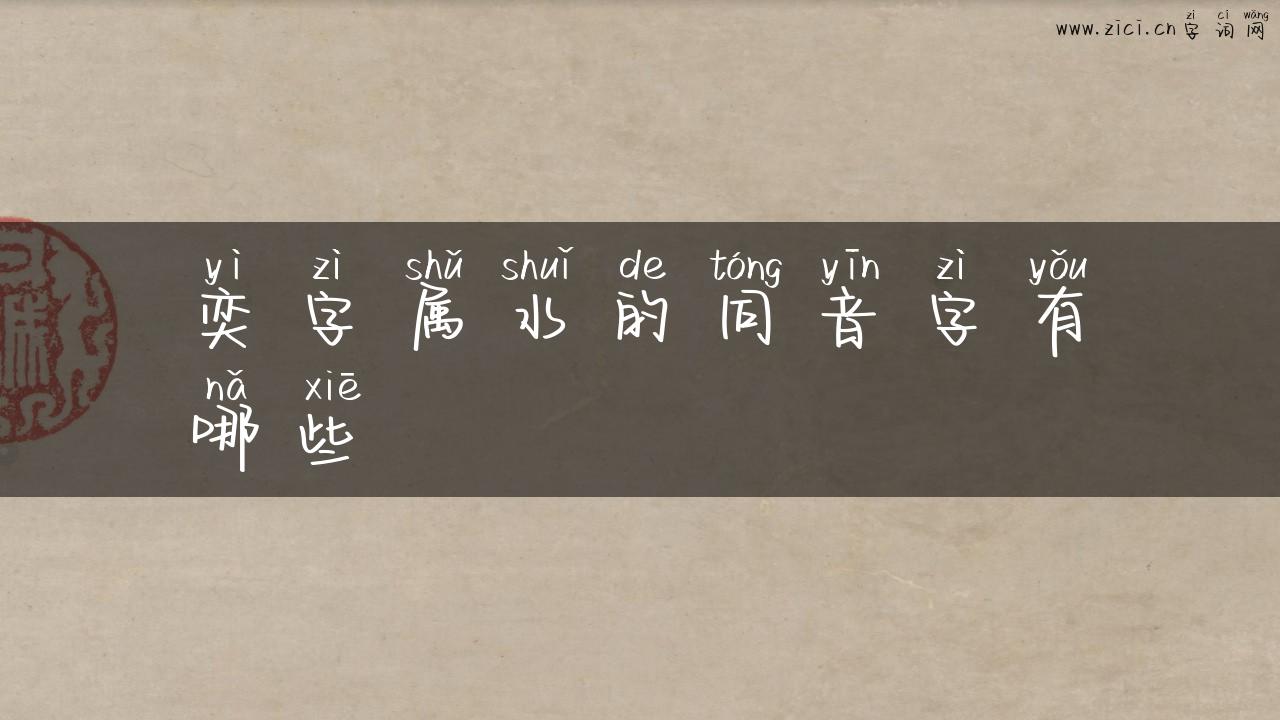 zì cí wǎng
www.zici.cn 字词网
yì zì shǔ shuǐ de tóng yīn zì yǒu
奕字属水的同音字有
nǎ xiē
哪些